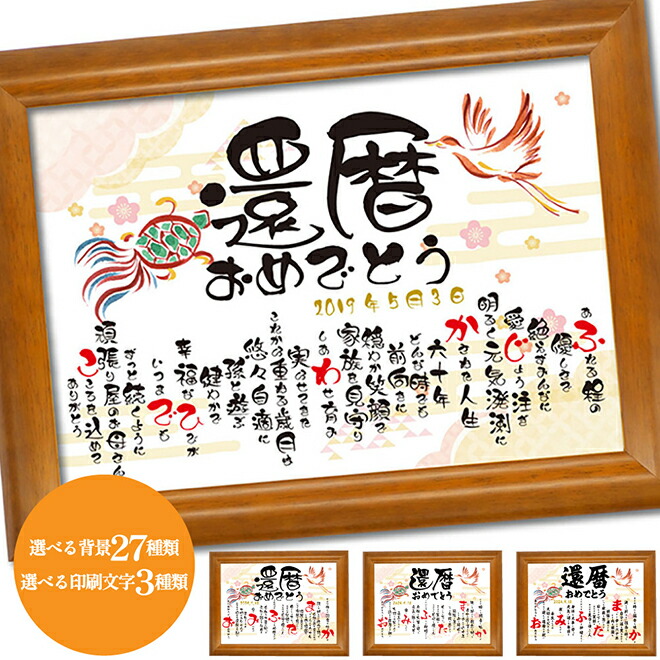 還暦
おめでとう
2019年5月3日
あふれる程の
優しさで
絶えずみんなに
愛じょう注ぎ
明るく元気溌溂に
かさねた人生
六十年
どんな時でも
前向きに
穏やか笑顔で
家族を見守り
しあわせ育み
実らせてきた
重ねる歳月は
悠々自適に
孫と遊ぶ
健やかで
幸福なひびが
いつまでも
ずっと続くように
頑張り屋のお母さん
こころを込めて
ありがとう
選べる背景27種類
選べる印刷文字3種類
還暦
おめでとう
還暦
おめでとう
還暦
おめでとう